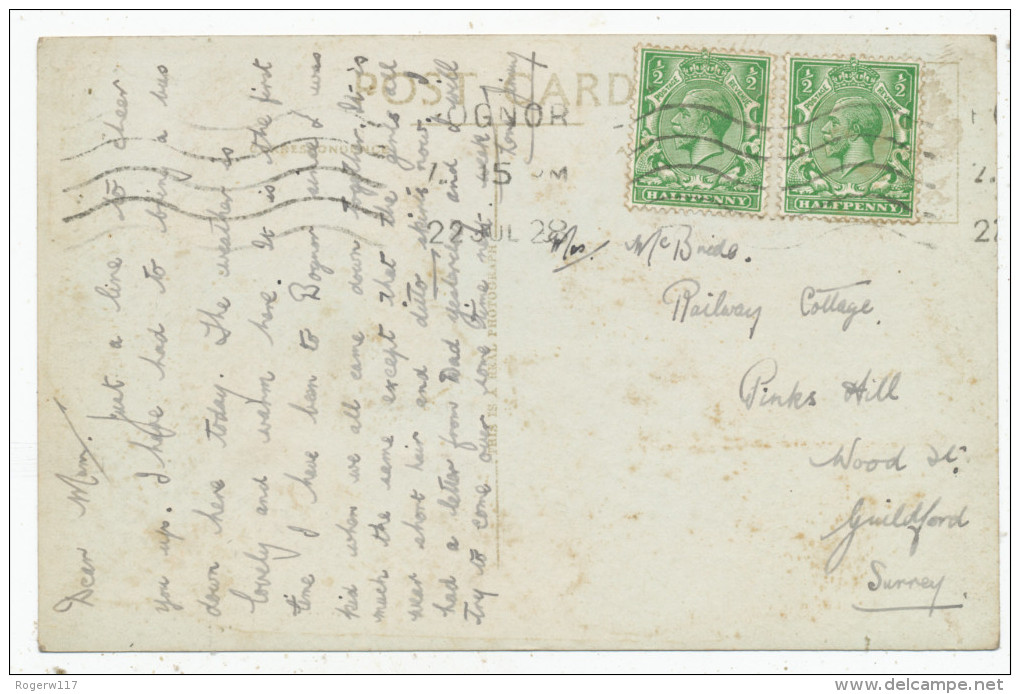 POST CARD
CORRESPONDENCE
OGNOR
5 PM
22 JUL 28
½ ½
POSTAGE REVENUE
HALFPENNY
½ ½
POSTAGE REVENUE
HALFPENNY
THIS IS A REAL PHOTOGRAPH
Dear Mum, Just a line to cheer
you up. I hope had to bring a bus
down here today. The weather is
lovely and warm here. It is the first
time I have been to Bognor since I was
kid when we all came down together. It is
much the same except that the girls all
wear short hair and ditto skirts now.
had a letter from Dad yesterday and I will
try to come our some time next week
Love Jimmy
Mrs. McBride.
Railway Cottage
Pinks Hill
Wood St.
Guildford
Surrey
Rogerw117
Delcampe.net